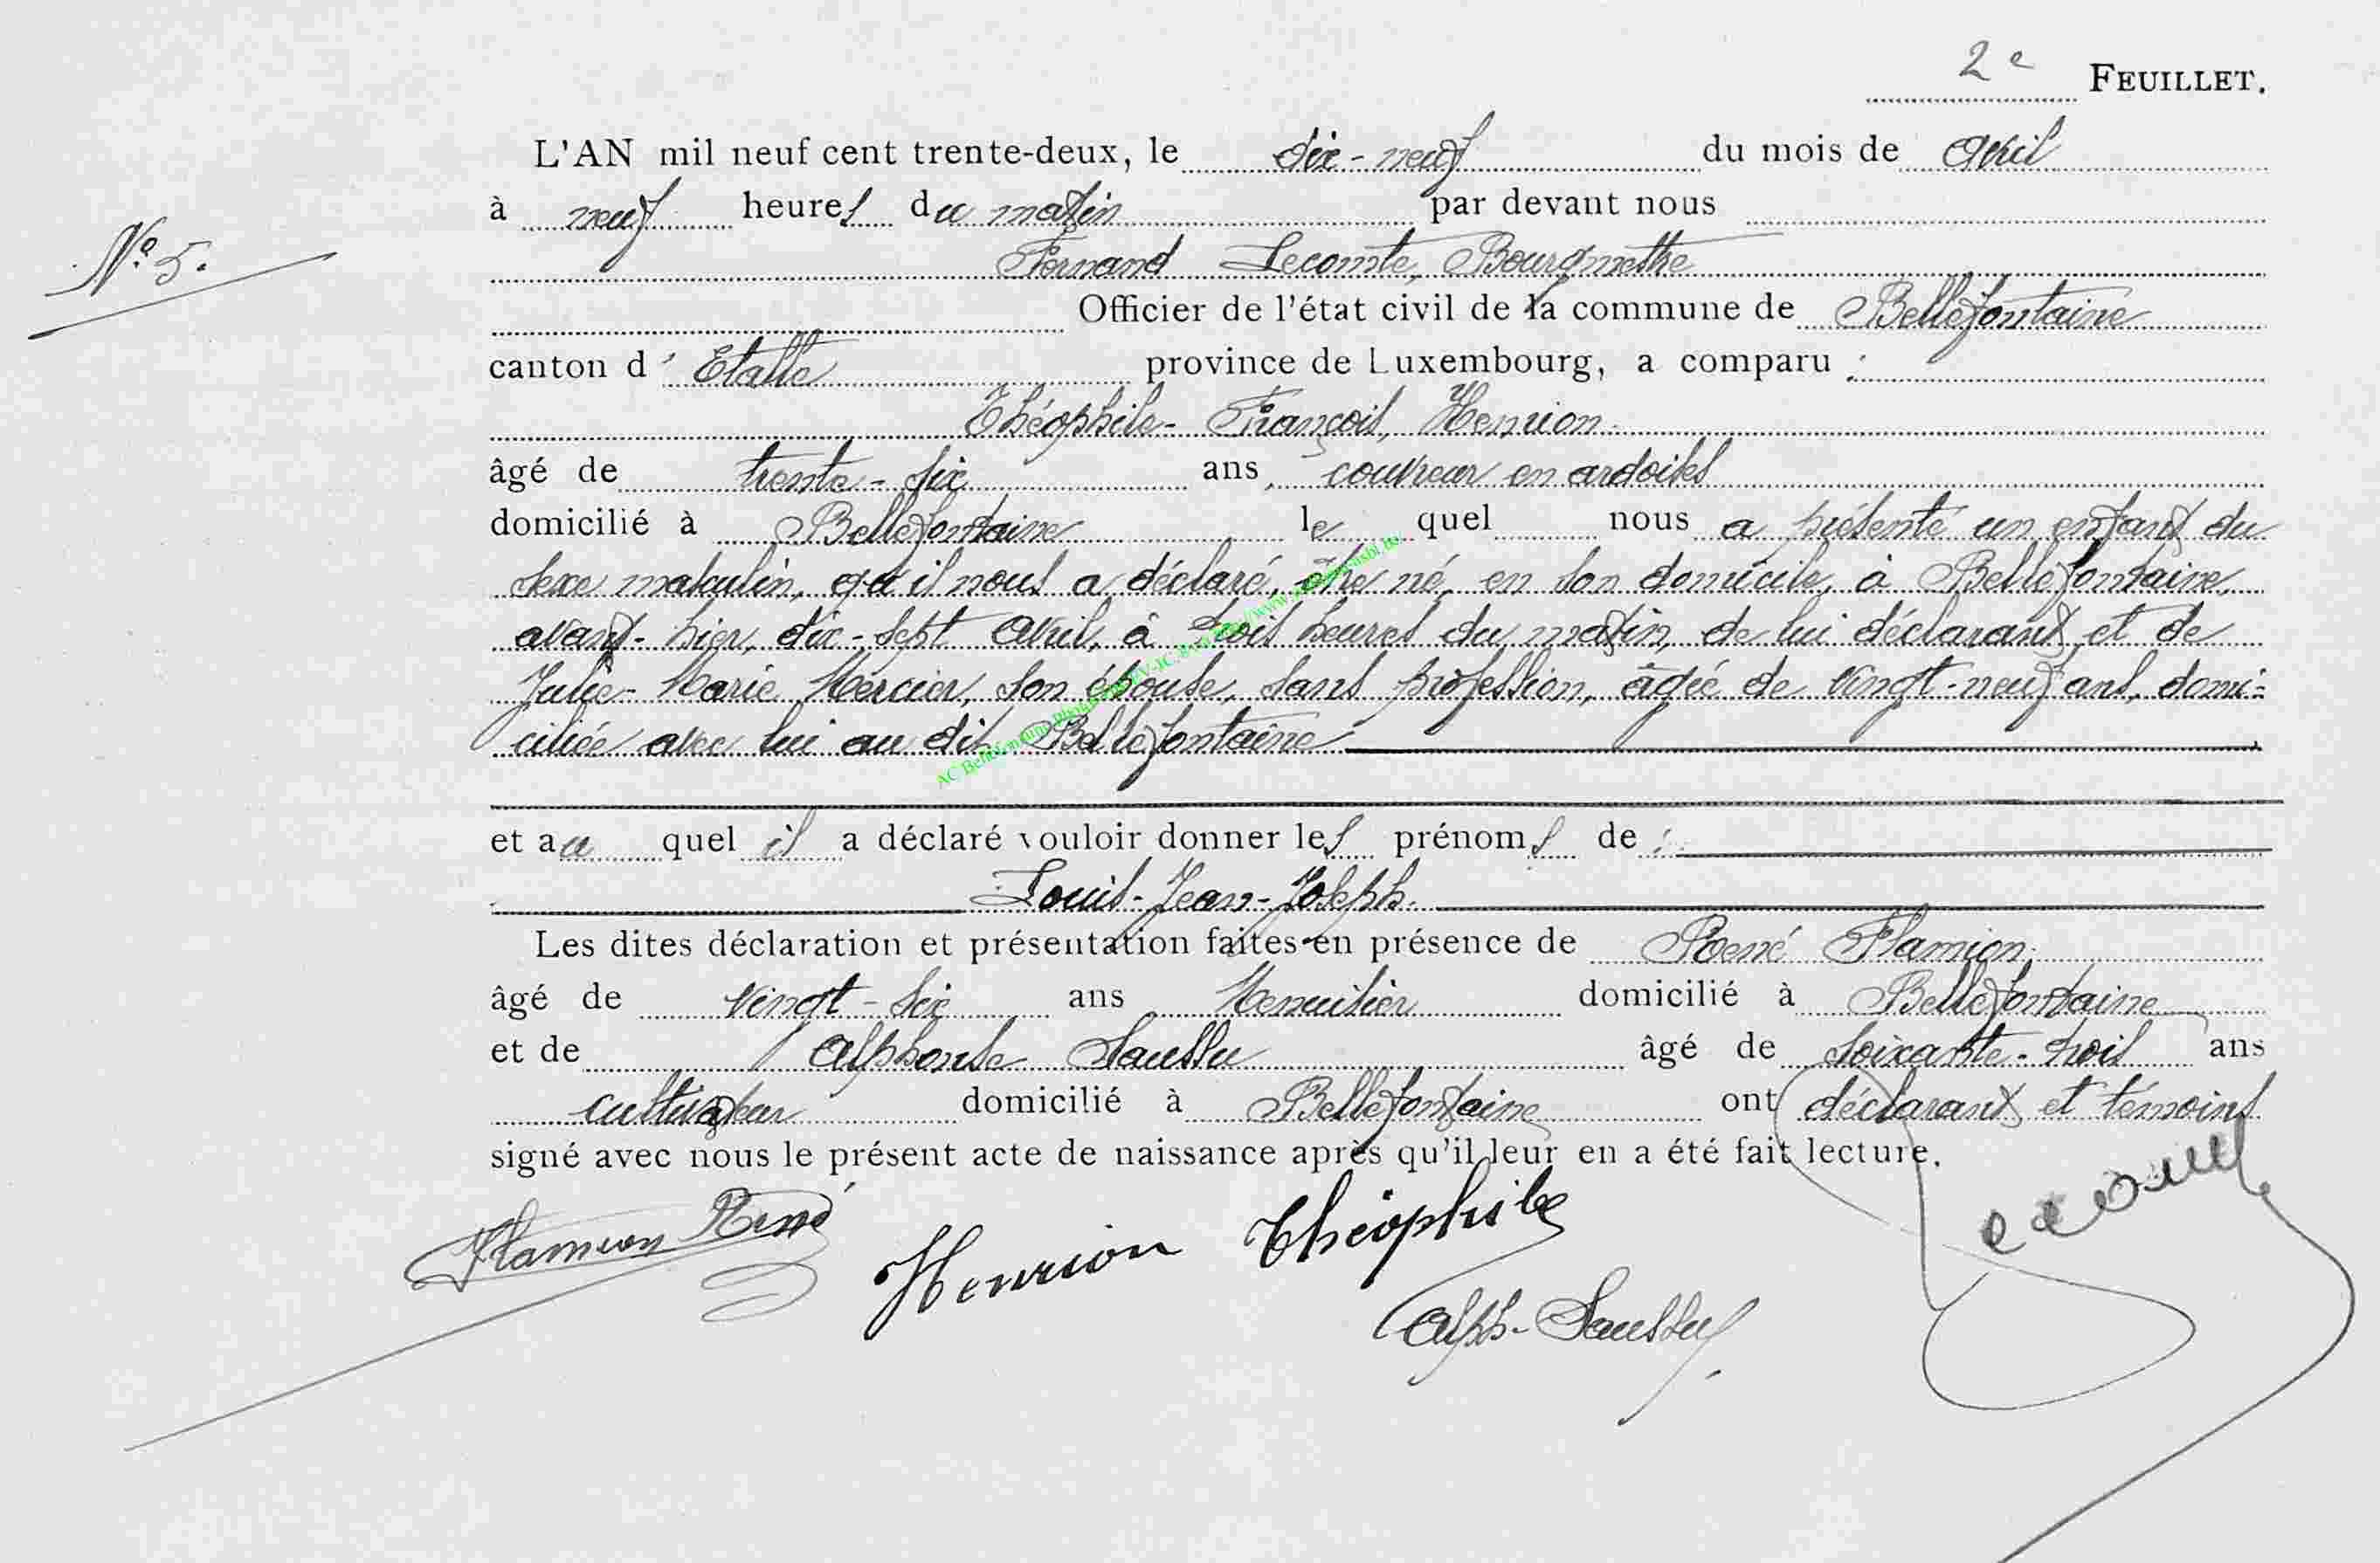 2e FEUILLET.
L'AN mil neuf cent trente-deux, le dix-neuf du mois de Avril
à neuf heures du matin par devant nous
N° 5.
Fernand Lecomte, Bourgmestre
Officier de l'état civil de la commune de Bellefontaine
canton d'Etalle province de Luxembourg, a comparu :
Théophile-François, Henrion
âgé de trente-six ans, couvreur en ardoises
domicilié à Bellefontaine lequel nous a présenté un enfant du
sexe masculin, qu'il nous a déclaré, être né, en son domicile, à Bellefontaine,
avant-hier, dix-sept Avril, à trois heures du matin, de lui déclarant, et de
Julie-Marie Mercier, son épouse, sans profession, âgée de vingt-neuf ans, domi-
ciliée avec lui au dit Bellefontaine
et au quel il a déclaré vouloir donner les prénoms de :
Louis-Jean-Joseph.
Les dites déclaration et présentation faites en présence de René Flamion,
âgé de vingt-six ans Menuisier domicilié à Bellefontaine
et de Alphonse Saussu âgé de soixante-trois ans
cultivateur domicilié à Bellefontaine ont déclarant et témoins
signé avec nous le présent acte de naissance après qu'il leur en a été fait lecture.
Flamion René
Henrion Théophile
Alph. Saussu
AC Bellefontaine